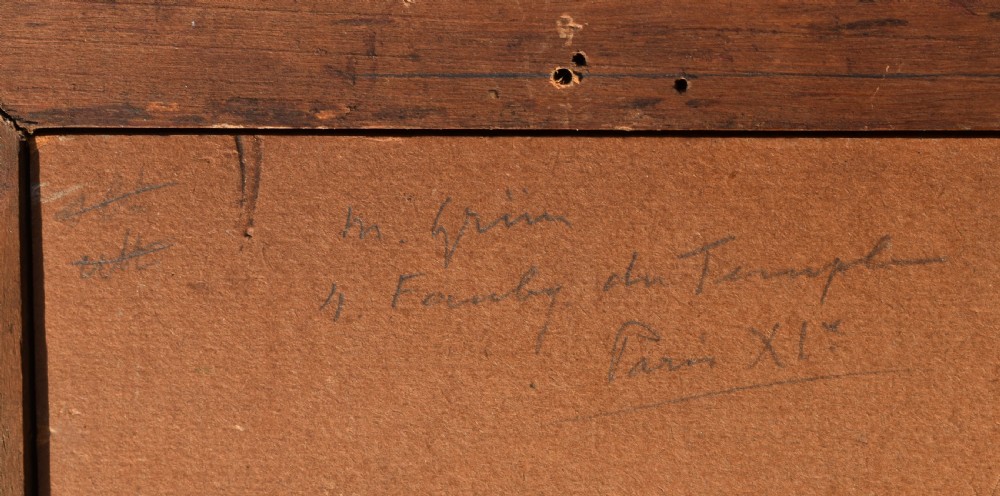 M. Grün
4. Faubg du Temple
Paris XIe